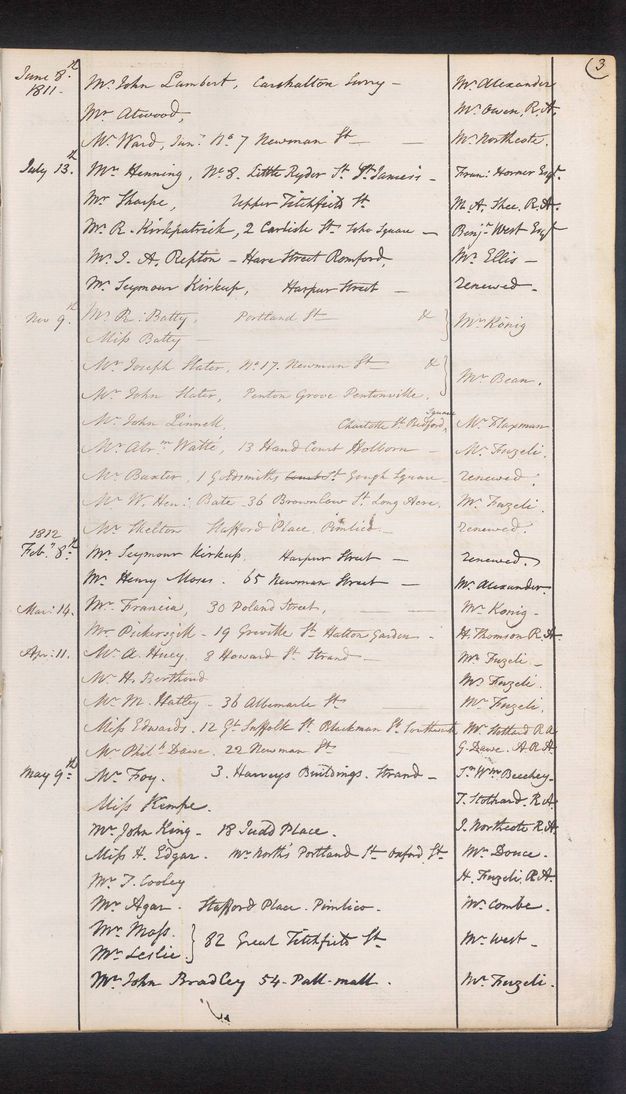 3
June 8.th Mr. John Lambert, Carshalton Surry - Mr. Alexander
1811 -
Mr. Atwood, Mr. Owen, R.A.
Mr. Ward, Junr. No. 7 Newman St - Mr. Northcote.
July 13.th Mr. Henning, No. 8. Little Ryder St. St. James's - Fran: Horner Esqr.
Mr. Sharpe, Upper Titchfield St M. A. Shee. R.A.
Mr. R. Kirkpatrick, 2 Carlisle St Soho Square - Benjn. West Esqr
Mr. J. A. Repton - Hare Street Romford, Mr. Ellis -
Mr. Seymour Kirkup, Harpur Street - renewed -
Nov 9.th Mr. R: Batty, Portland St & } Mr. König
Miss Batty -
Mr. Joseph Slater, No. 17. Newman St - & } Mr. Bean.
Mr. John Slater, Penton Grove Pentonville.
Mr. John Linnell, Charlotte St. Bedford Square Mr. Flaxman
Mr. Abrm. Watté, 13 Hand Court Holborn - Mr. Fuzeli.
Mr. Baxter, 1 Goldsmiths Court St. Gough Square renewed.
Mr. W. Hen: Bate 36 Brownlow St. Long Acre. Mr. Fuzeli.
Mr. Skelton Stafford Place, Pimlico - renewed.
1812
Feby. 8.th Mr. Seymour Kirkup. Harpur Street - renewed.
Mr. Henry Moses. 65 Newman Street - Mr. Alexander.
Mar: 14. Mr. Francia, 30 Poland Street, Mr. Konig -
Mr. Pickersgill - 19 Greville St. Hatton Garden - H. Thomson R.A
Apr: 11. Mr. A. Huey. 8 Howard St. Strand - Mr. Fuzeli. -
Mr. H. Berthoud Mr. Fuzeli.
Mr. M. Hatley - 36 Albemarle St Mr. Fuzeli.
Miss Edwards. 12 Gt. Suffolk St. Blackman St. Southwark, Mr. Stothard R.A
Mr. Phil. Dawe. 22 Newman St G. Dawe. A.R.A
May 9.th Mr. Foy. 3. Harveys Buildings. Strand - Sr. Wm. Beechey -
Miss Kempe. T. Stothard. R.A
Mr. John King - 18 Judd Place. J. Northcote R.A
Miss H. Edgar. Mr. North's Portland St. Oxford St. Mr. Douce.
Mr. T. Cooley H. Fuzeli. R.A.
Mr. Agar. Stafford Place. Pimlico. Mr. Combe.
Mr. Moss. } 82 Great Titchfield St Mr. West -
Mr. Leslie
Mr. John Bradley 54 - Pall-mall. Mr. Fuzeli.